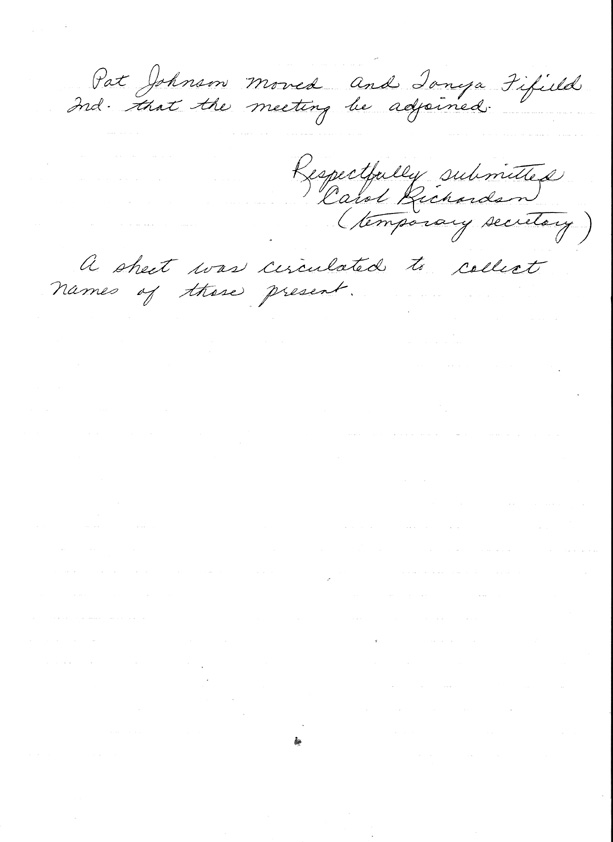 Pat Johnson moved and Tonya Fifield
2nd. that the meeting be adjoined.
Respectfully submitted
Carol Richardson
(temporary secretary)
A sheet was circulated to collect
names of those present.